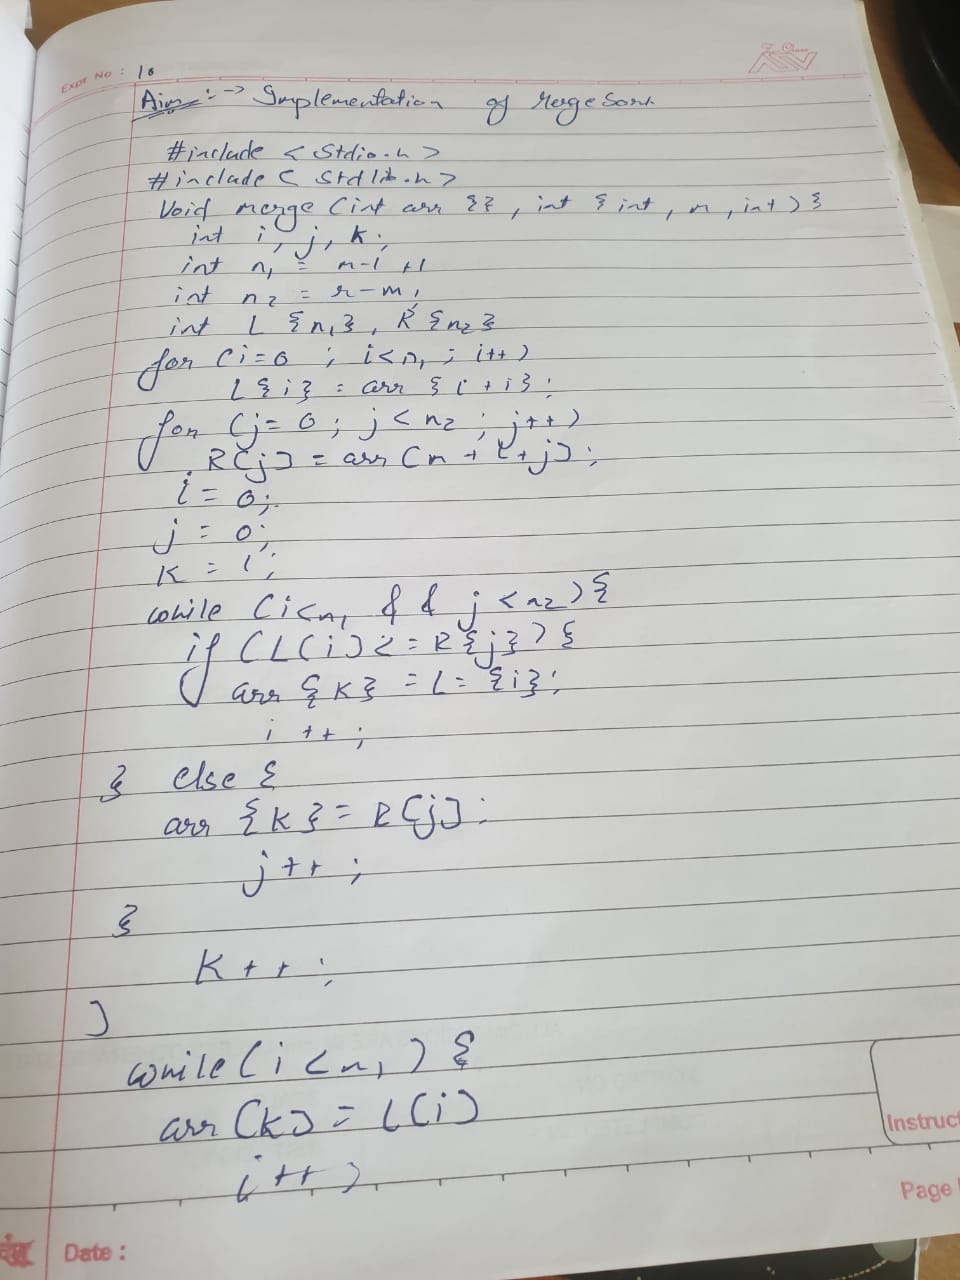 Expt No : 10
Aim :-> Implementation of Merge Sort
#include < Stdio.h >
#include < Stdlib.h >
Void merge (int arr {} , int { int , m , int ) {
int i, j, k ;
int n1 = m-l +1
int n2 = r-m ,
int L {n1} , R {n2}
for (i=0 ; i<n1 ; i++)
L{i} = arr {l+i} ;
for (j=0 ; j<n2 ; j++)
R[j] = arr [m + l+j] ;
i = 0;
j = 0;
K = l ;
while (i<n1 && j <n2) {
if (L[i] <= R{j}) {
arr {K} = L= {i} ;
i ++ ;
} else {
arr {K} = R[j] ;
j ++ ;
}
K ++ ;
}
while (i <n1 ) {
arr [k] = L[i]
i ++ )
Instruct
Page
Date :